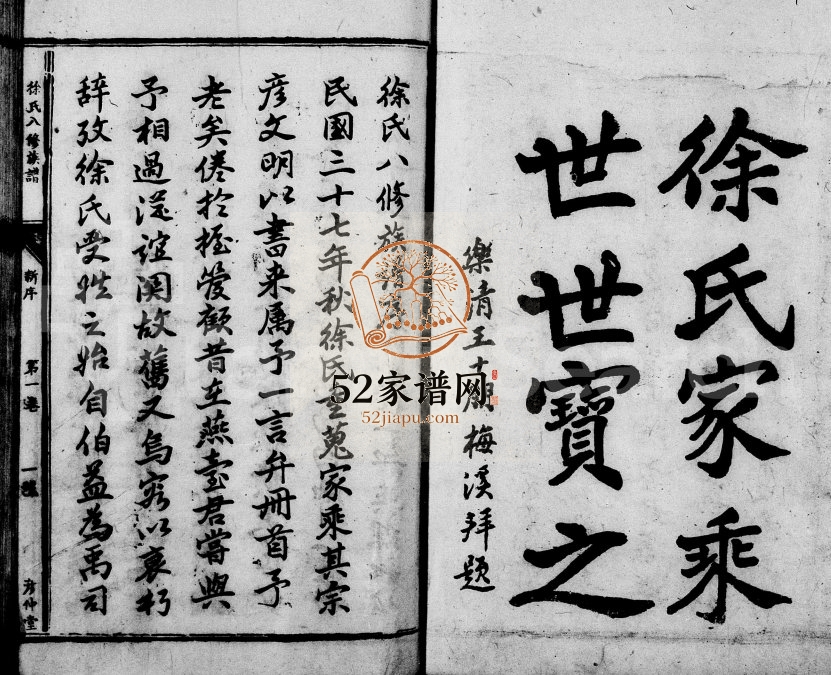 徐氏家乘
世世寶之
樂清王十朋梅溪拜題
徐氏八修族譜序
民國三十七年秋徐氏重蒐家乘其宗
彥文明以書来属予一言弁冊首予
老矣倦扵握管顧昔在燕臺君嘗與
予相過從誼関故舊又烏容以衰朽
辞攷徐氏受姓之始自伯益為禹司
徐氏八修族譜
新序
第一卷
一
彥仲堂
52家谱网
52jiapu.com